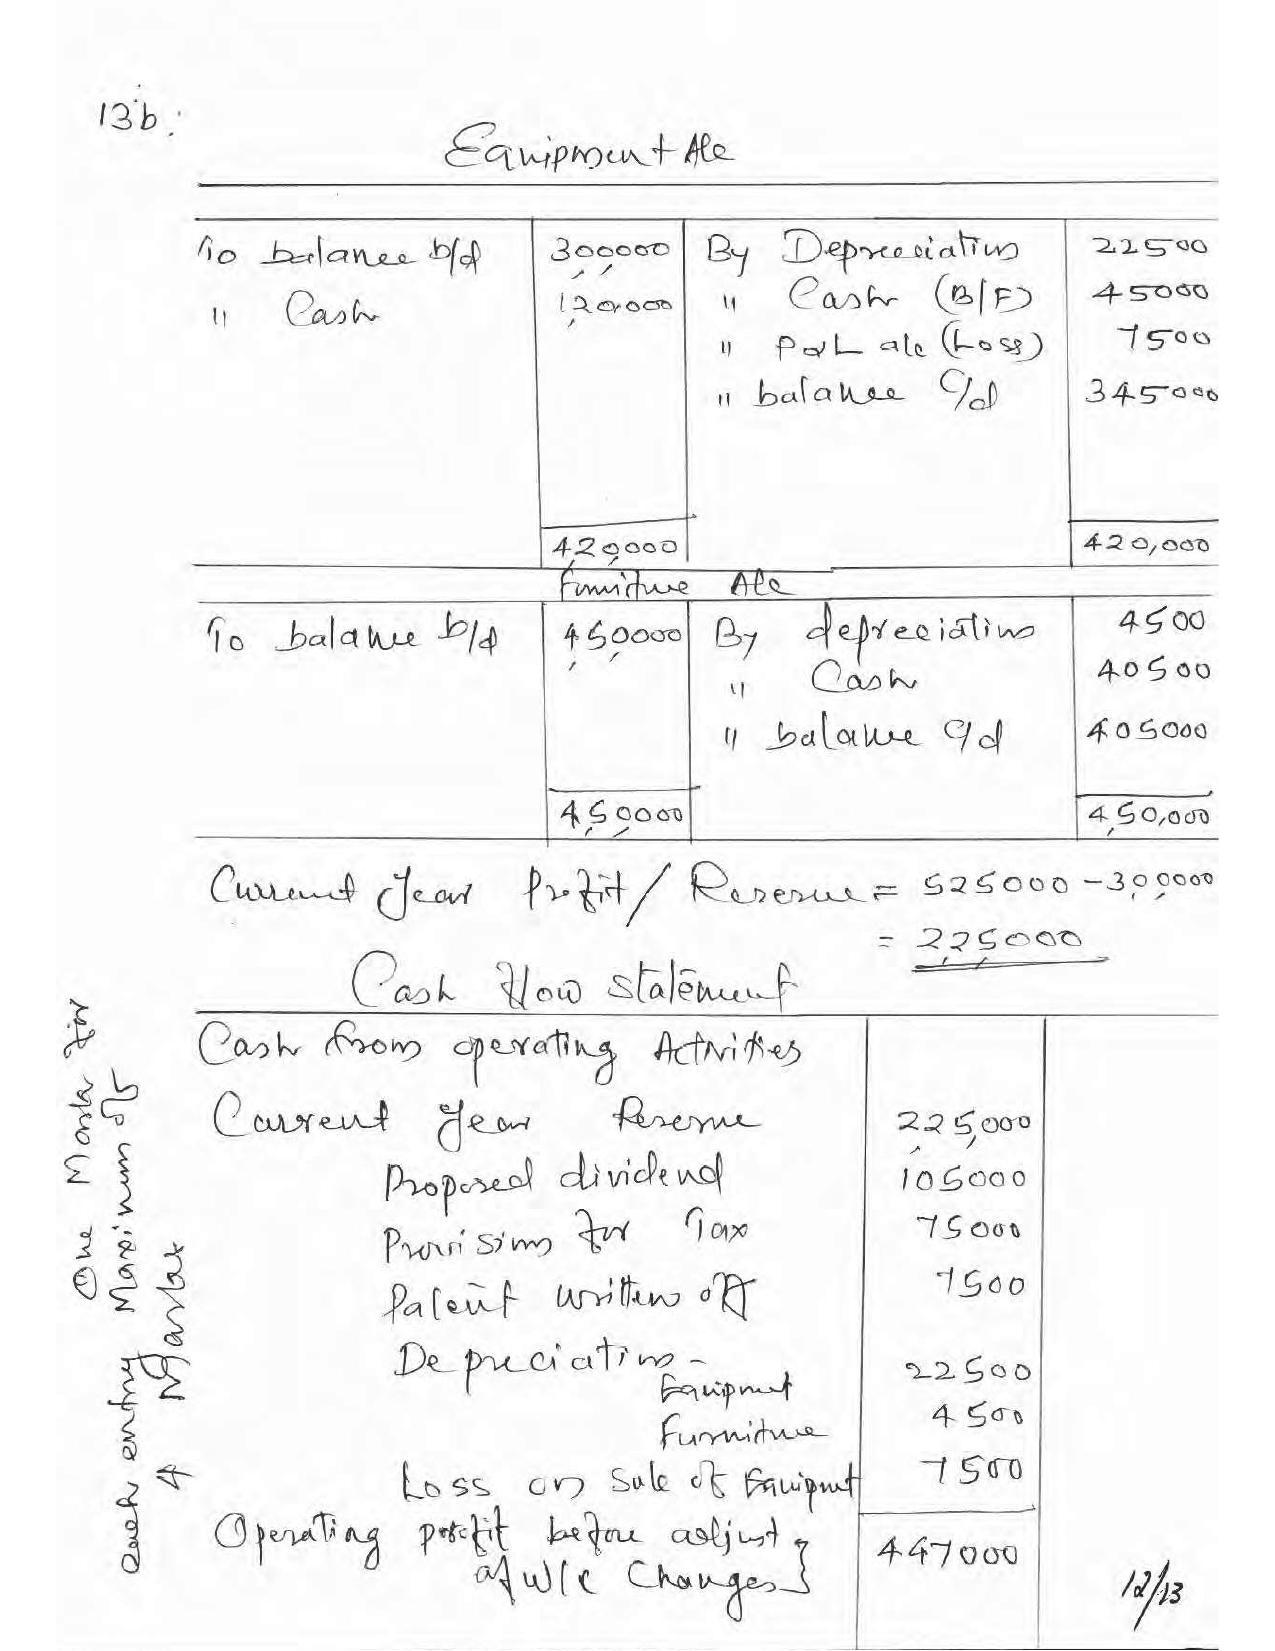 13b.
Equipment A/c
To balance b/d 300000 By Depreciation 22500
" Cash 120,000 " Cash (B/F) 45000
" P&L a/c (Loss) 7500
" balance c/d 345000
420000 420,000
Furniture A/c
To balance b/d 450000 By depreciation 4500
" Cash 40500
" balance c/d 405000
450000 450,000
Current year Profit/Reserve = 525000 - 300000
= 225000
Cash flow statement
Cash from operating Activities
Current year Reserve 225,000
Proposed dividend 105000
Provision for Tax 75000
Patent written off 7500
Depreciation -
Equipment 22500
Furniture 4500
Loss on sale of Equipment 7500
Operating profit before adjust
of W/C Changes } 447000
One Mark for
each entry Maximum of
4 Marks
12/13